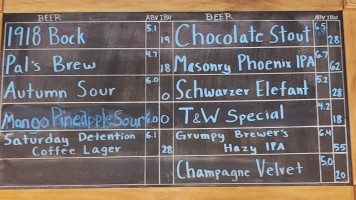 BEER ABV IBU BEER ABV IBU
1918 Bock 5.1 19
Chocolate Stout 6.5 28
Pal's Brew 4.7 18
Masonry Phoenix IPA 6.7 62
Autumn Sour 6.0 0
Schwarzer Elefant 5.2 28
Mango Pineapple Sour 6.0 0
T&W Special 4.2 18
Saturday Detention 6.1
Coffee Lager 28
Grumpy Brewer's 6.4
Hazy IPA 55
Champagne Velvet 5.0 20